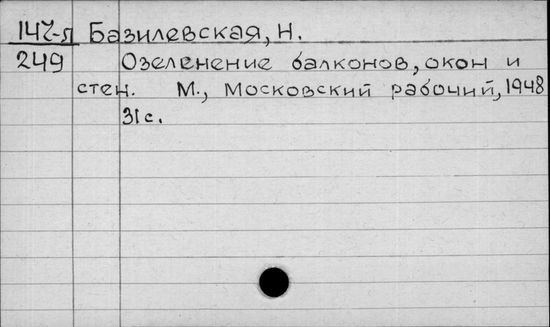 147-л Базилевская, Н.
249 Озеленение балконов, окон и
стен. М., Московский рабочий, 1948
31с.